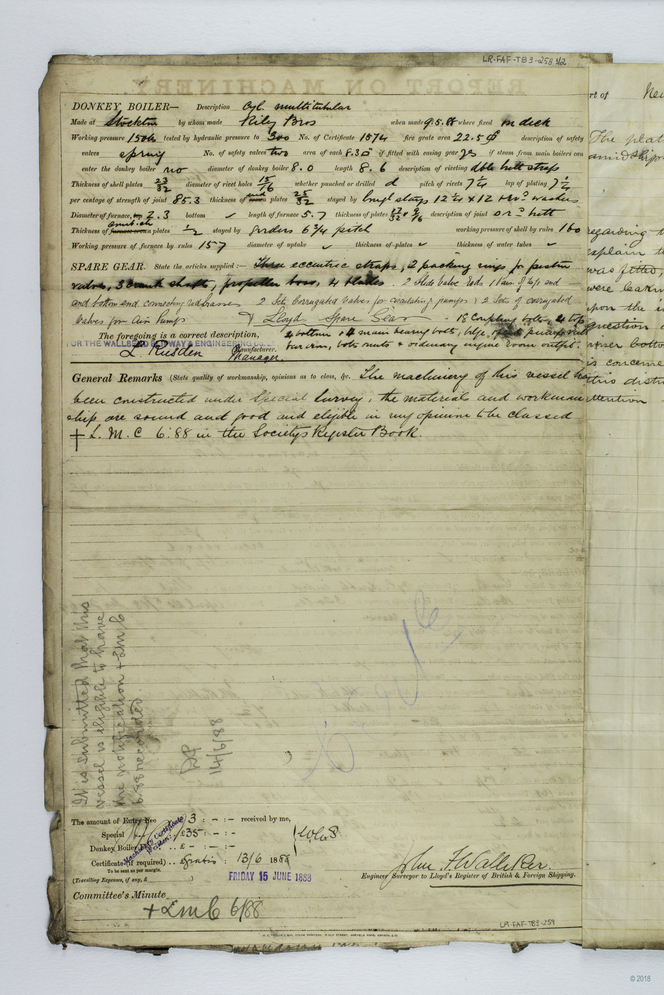 LR-FAF-TB3-258
DONKEY BOILER— Description Cyl. multitubular
Made at Stockton by whom made Riley Bros when made 9.5.88 where fixed on deck
Working pressure 150 lb tested by hydraulic pressure to 300 No. of Certificate 1574 fire grate area 22.5 description of safety
valves spring No. of safety valves two area of each 8.30 if fitted with easing gear yes if steam from main boilers can
enter the donkey boiler no diameter of donkey boiler 8.0 length 8.6 description of riveting dble butt straps
Thickness of shell plates 23/32 diameter of rivet holes 15/16 whether punched or drilled d pitch of rivets 7 1/4 lap of plating
per centage of strength of joint 85.3 thickness of end plates 25/32 stayed by long stays 12 1/4 x 12 washers
Diameter of furnace, 2.3 bottom length of furnace 5.7 thickness of plates description of joint butt
Thickness of plates 1/2 stayed by girders 6 3/4 pitch working pressure of shell by rules 160
Working pressure of furnace by rules 157 diameter of uptake thickness of plates thickness of water tubes
SPARE GEAR. State the articles supplied:— Three eccentric straps, 2 packing rings for piston
valves, 3 crank shafts, propeller boss, 4 blades. 2 Slide Valve Rods
and bottom end connecting rod brasses 2 Sets Corrugated Valves for circulating pumps 2 Sets of corrugated
Valves for Air Pumps & Lloyd Spare Gear - 15 Coupling bolts, 4 top
The foregoing is a correct description, 4 bottom & 4 main bearing bolts,
FOR THE WALLSEND SLIPWAY & ENGINEERING
L Rusden Manufacturer. iron, bolts nuts & ordinary engine room outfit.
Manager.
General Remarks (State quality of workmanship, opinions as to class, &c. The machinery of this vessel has
been constructed under Special Survey, the material and workman
ship are sound and good and eligible in my opinion to be classed
+ L.M.C 6.88 in the Society's Register Book.
It is submitted that this
vessel is eligible to have
the notification + LMC
6.88 recorded.
14/6/88
The amount of Entry Fee 3 : - : - received by me,
Special £35 : - : -
Donkey Boiler Fee £ - : - : -
Certificate (if required) gratis : 13/6 1888
To be sent as per margin.
(Travelling Expenses, if any, £ )
FRIDAY 15 JUNE 1888
Engineer Surveyor to Lloyd's Register of British & Foreign Shipping.
Committee's Minute
+ LMC 6/88
LR-FAF-TB3-259
rt of
The plat
amidship
regarding
explain t
was fitted,
were
upon the
question
bottom
is concerne
this distri
attention
© 2018